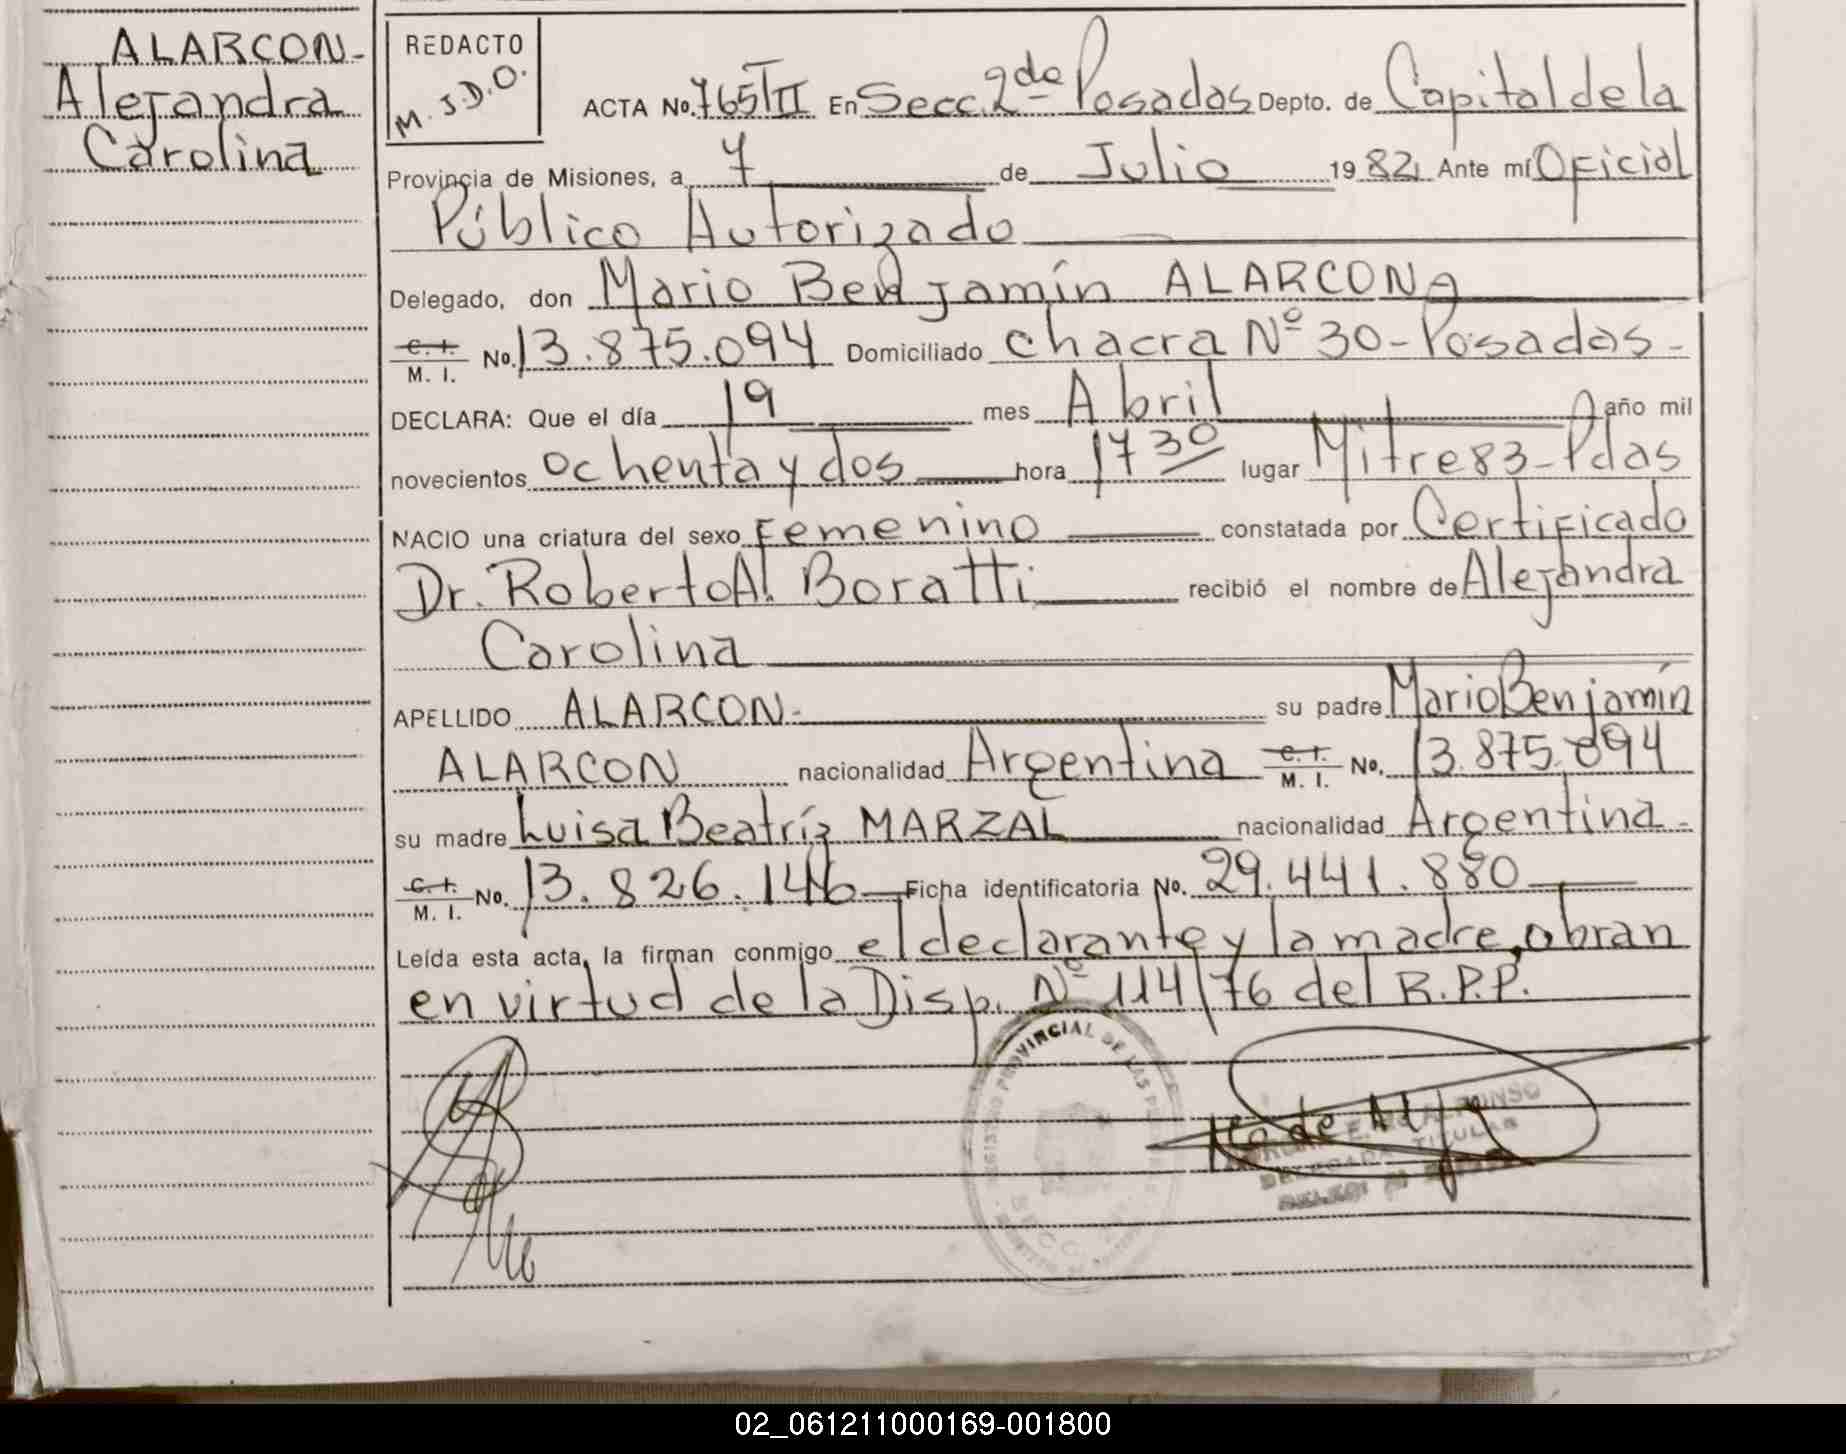 ALARCON-
Alejandra
Carolina
REDACTO
M. J.D.O.
ACTA No. 765/TII En Secc. 2da Posadas Depto. de Capital de la
Provincia de Misiones, a 7 de Julio 1982 Ante mí Oficial
Público Autorizado
Delegado, don Mario Benjamín ALARCON
C. I. M. I. No. 13.875.094 Domiciliado chacra Nº 30-Posadas-
DECLARA: Que el día 19 mes Abril año mil
novecientos ochenta y dos hora 17 30 lugar Mitre 83-Pdas
NACIO una criatura del sexo Femenino constatada por Certificado
Dr. Roberto A. Boratti recibió el nombre de Alejandra
Carolina
APELLIDO ALARCON- su padre Mario Benjamín
ALARCON nacionalidad Argentina C. I. M. I. No. 13.875.094
su madre Luisa Beatríz MARZAL nacionalidad Argentina-
C. I. M. I. No. 13.826.146 Ficha identificatoria No. 29.441.880
Leída esta acta, la firman conmigo el declarante y la madre, obran
en virtud de la Disp. Nº 114/76 del R.P.P.
PROVINCIAL DE LAS
02_061211000169-001800